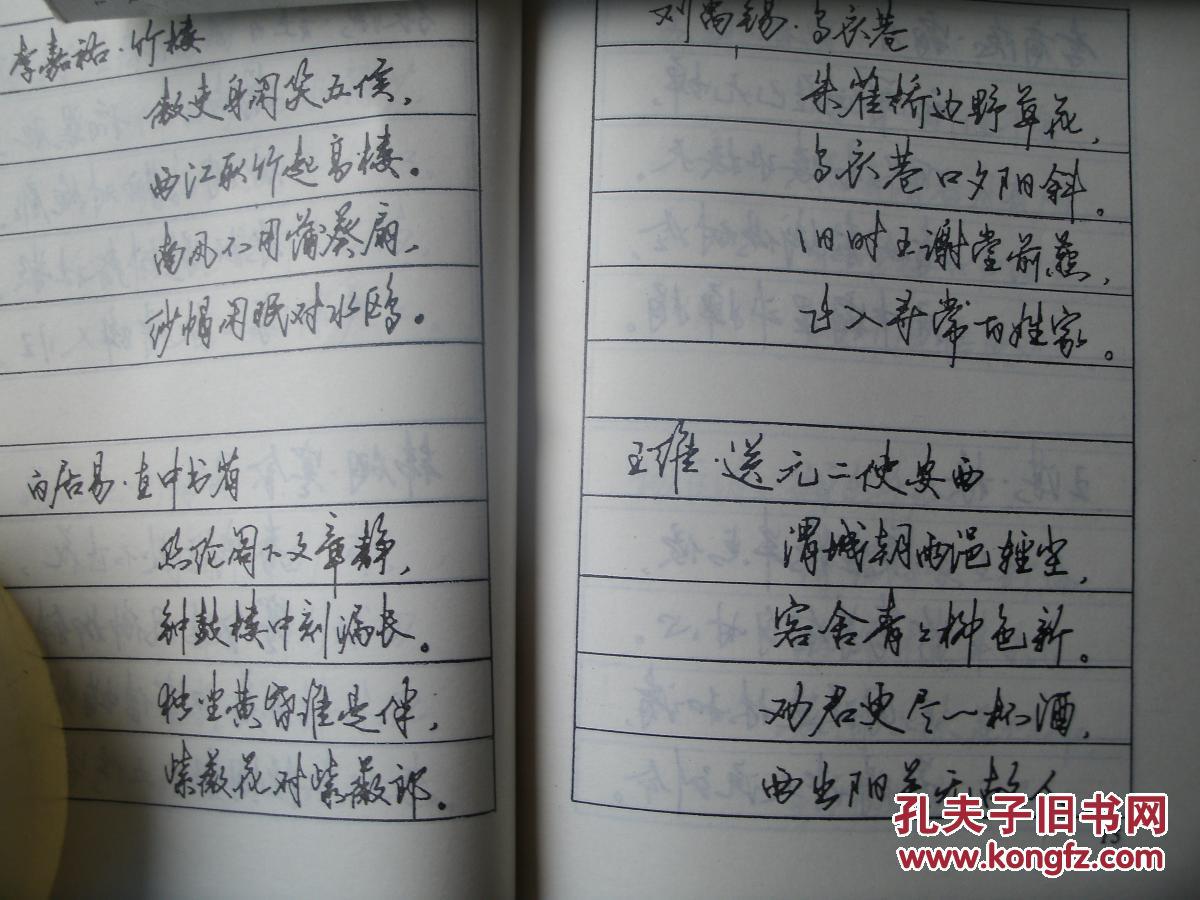 李嘉祐·竹楼
傲吏身闲笑五侯，
西江取竹起高楼。
南风不用蒲葵扇，
纱帽闲眠对水鸥。
白居易·直中书省
丝纶阁下文章静，
钟鼓楼中刻漏长。
独坐黄昏谁是伴，
紫薇花对紫薇郎。
刘禹锡·乌衣巷
朱雀桥边野草花，
乌衣巷口夕阳斜。
旧时王谢堂前燕，
飞入寻常百姓家。
王维·送元二使安西
渭城朝雨浥轻尘，
客舍青々柳色新。
劝君更尽一杯酒，
西出阳关无故人
13
孔夫子旧书网
www.kongfz.com